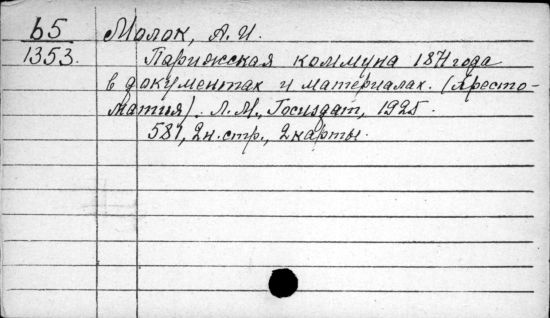 б5 Молок, А.И.
1353. Парижская коммуна 1871 года
в документах и материалах. (Хресто-
матия). Л. М., Госиздат, 1925.
581, 2н.стр., 2 карты.